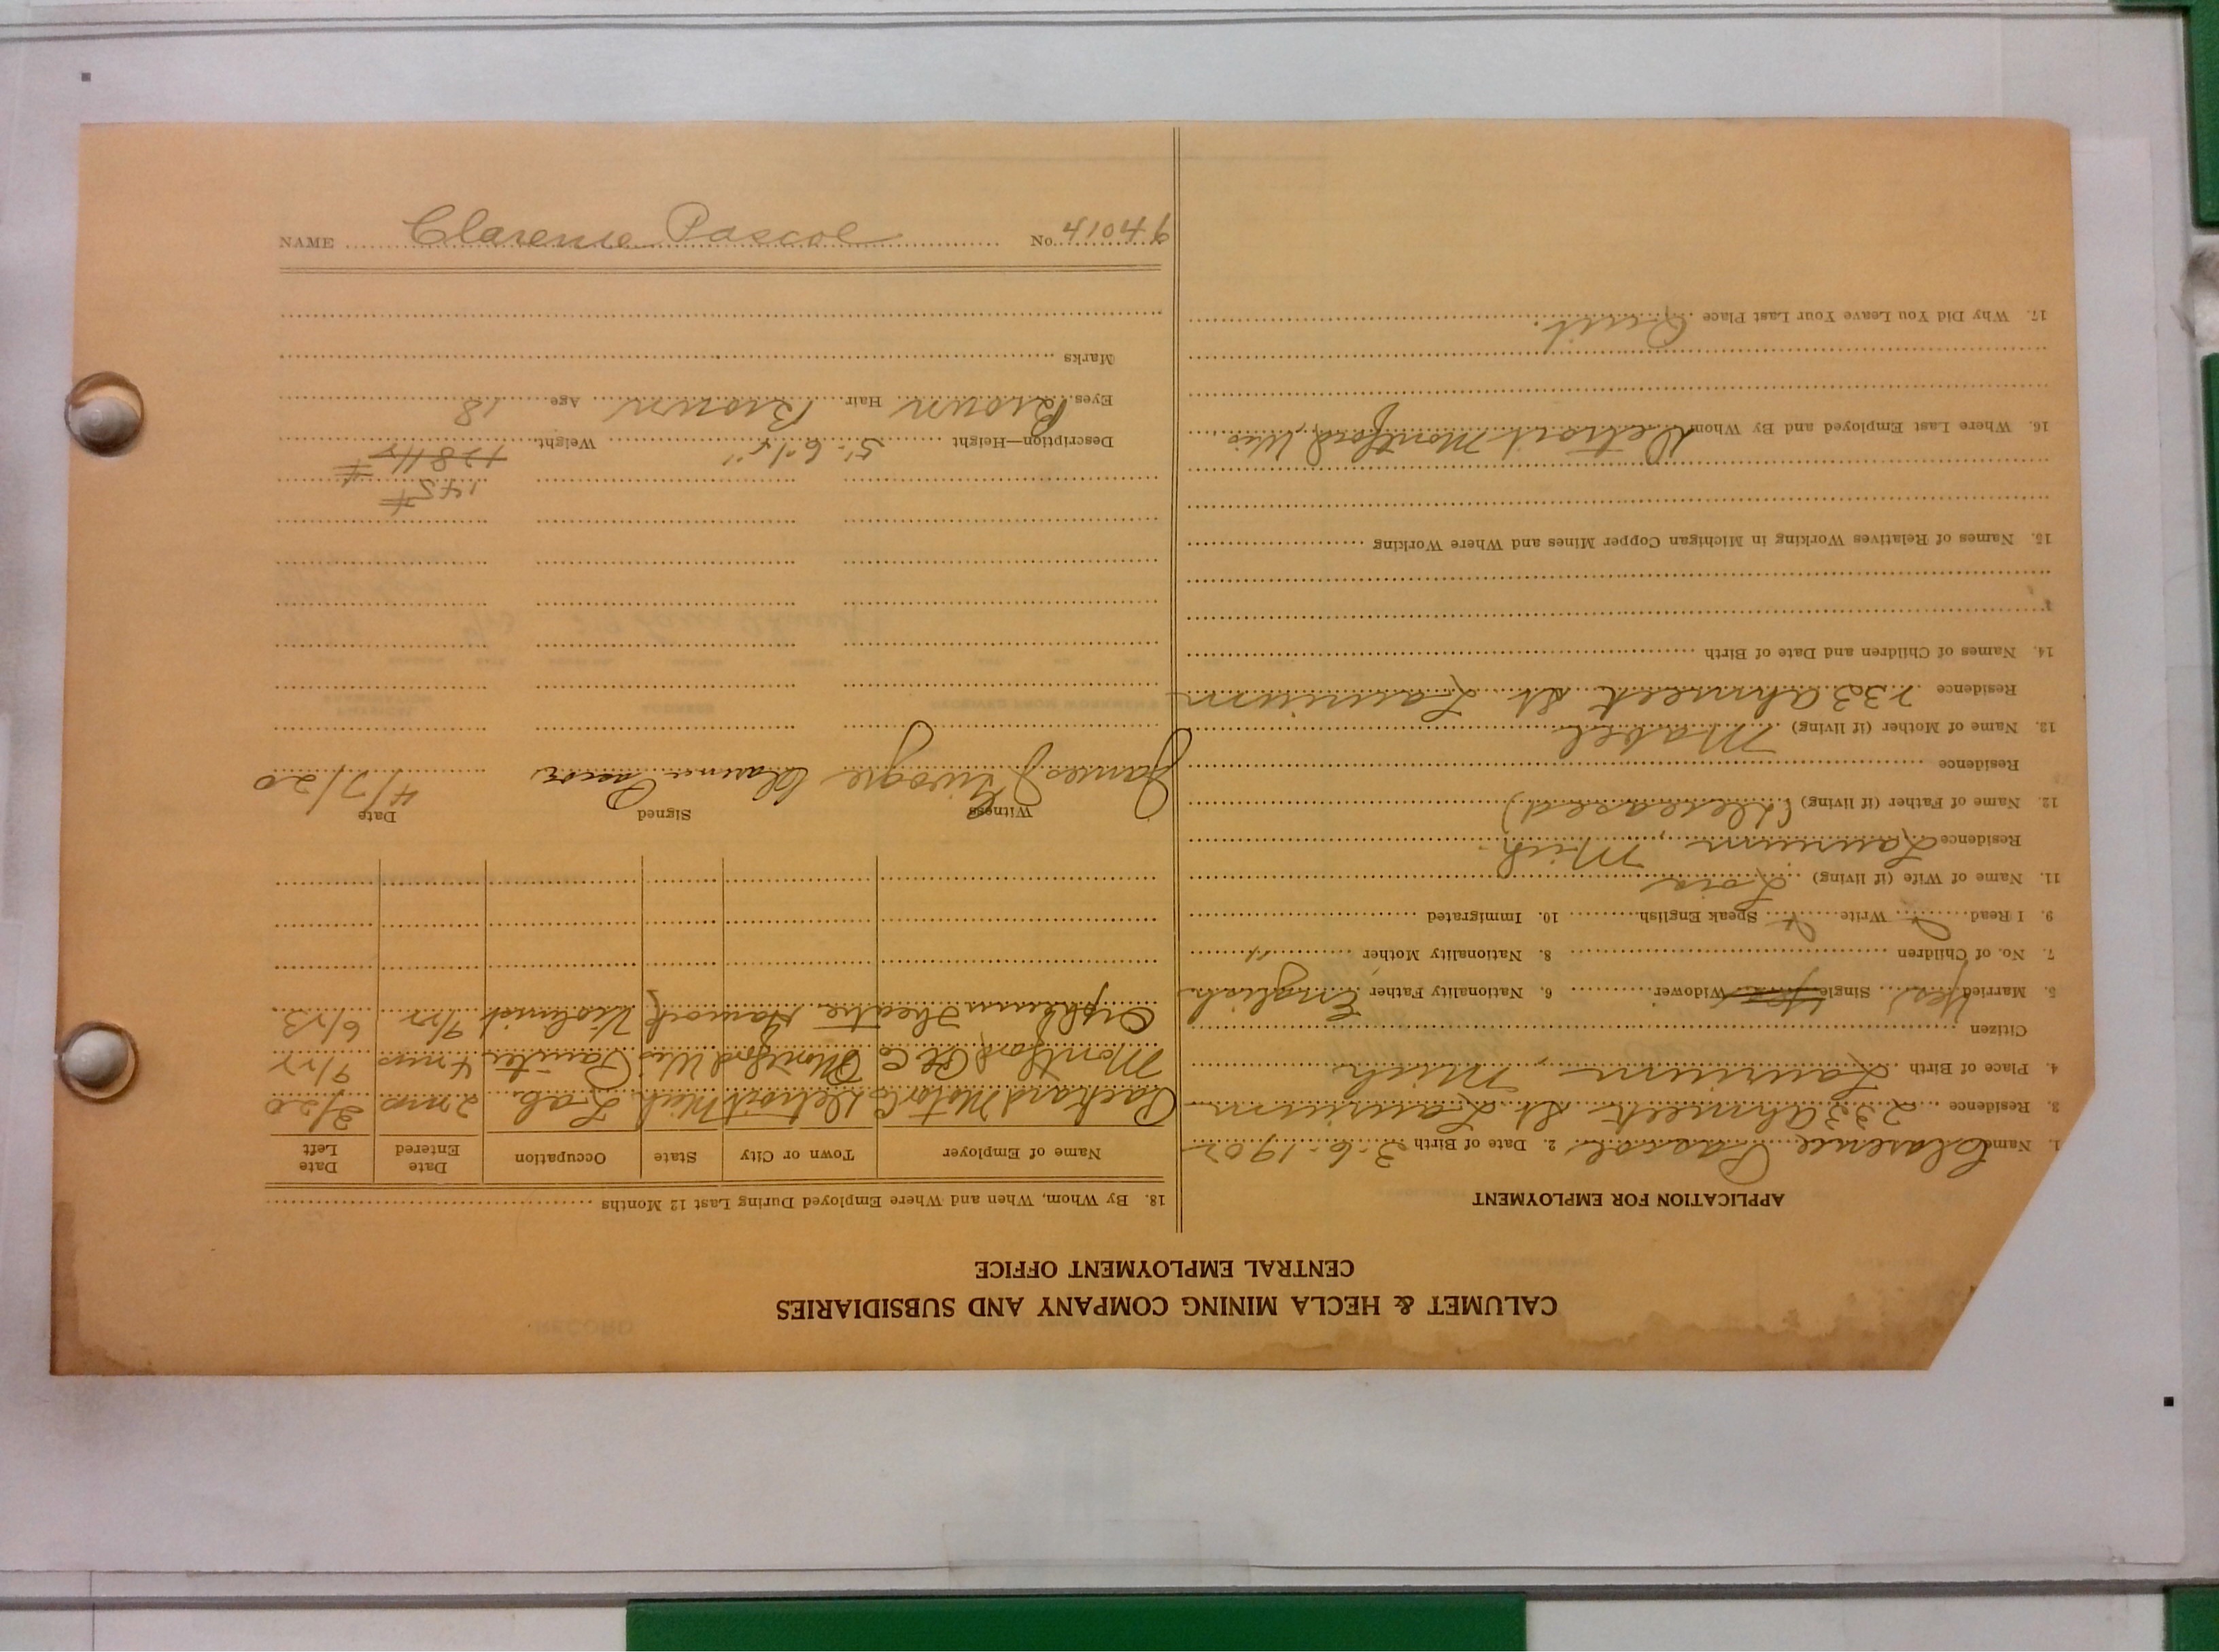 CALUMET & HECLA MINING COMPANY AND SUBSIDIARIES
CENTRAL EMPLOYMENT OFFICE
APPLICATION FOR EMPLOYMENT
1. Name Clarence Pascoe 2. Date of Birth 3-6-1902
3. Residence 233 Ahmeek St Laurium
4. Place of Birth Laurium, Mich
Citizen
5. Married Yes Single Widower 6. Nationality Father English
7. No. of Children 8. Nationality Mother
9. I Read Write Speak English 10. Immigrated
11. Name of Wife (if living) Lois
Residence Laurium, Mich.
12. Name of Father (if living) (Deceased)
Residence
13. Name of Mother (if living) Mabel
Residence 233 Ahmeek St. Laurium
14. Names of Children and Date of Birth
15. Names of Relatives Working in Michigan Copper Mines and Where Working
16. Where Last Employed and By Whom Detroit Montford, Wis.
17. Why Did You Leave Your Last Place Quit.
18. By Whom, When and Where Employed During Last 12 Months
Name of Employer Town or City State Occupation Date Entered Date Left
Packard Motor Co Detroit Mich Lab. 2 mos 3/20
Montford Co Montford Wis Painter 4 mos 9/22
Orpheum Theatre Hancock Violinist 9/22 6/23
Witness Signed Date
James J Clarence Pascoe 4/7/20
145 #
Description—Height 5'. 6 1/2" Weight 128 1/2 #
Eyes Brown Hair Brown Age 18
Marks
NAME Clarence Pascoe No. 41046